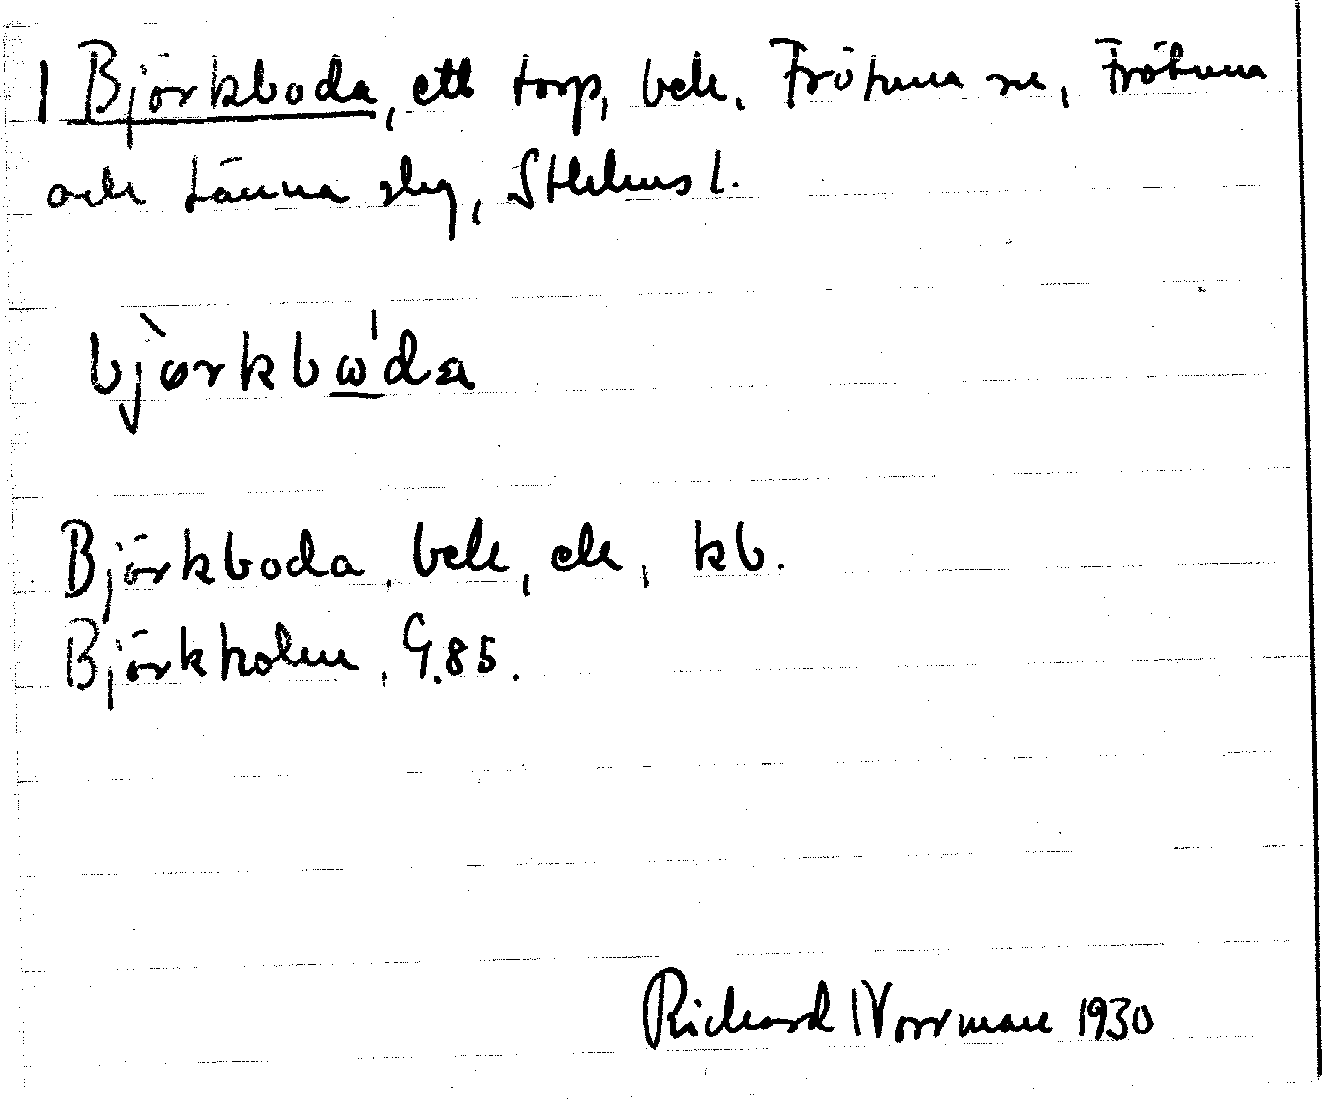 1 Björkboda, ett torp, bek. Frötuna sn, Frötuna
och Länna slg, Sthlms l.
bjòrkbω'da
Björkboda, bek, ek, kb.
Björkholm, G.85.
Richard Norrman 1930